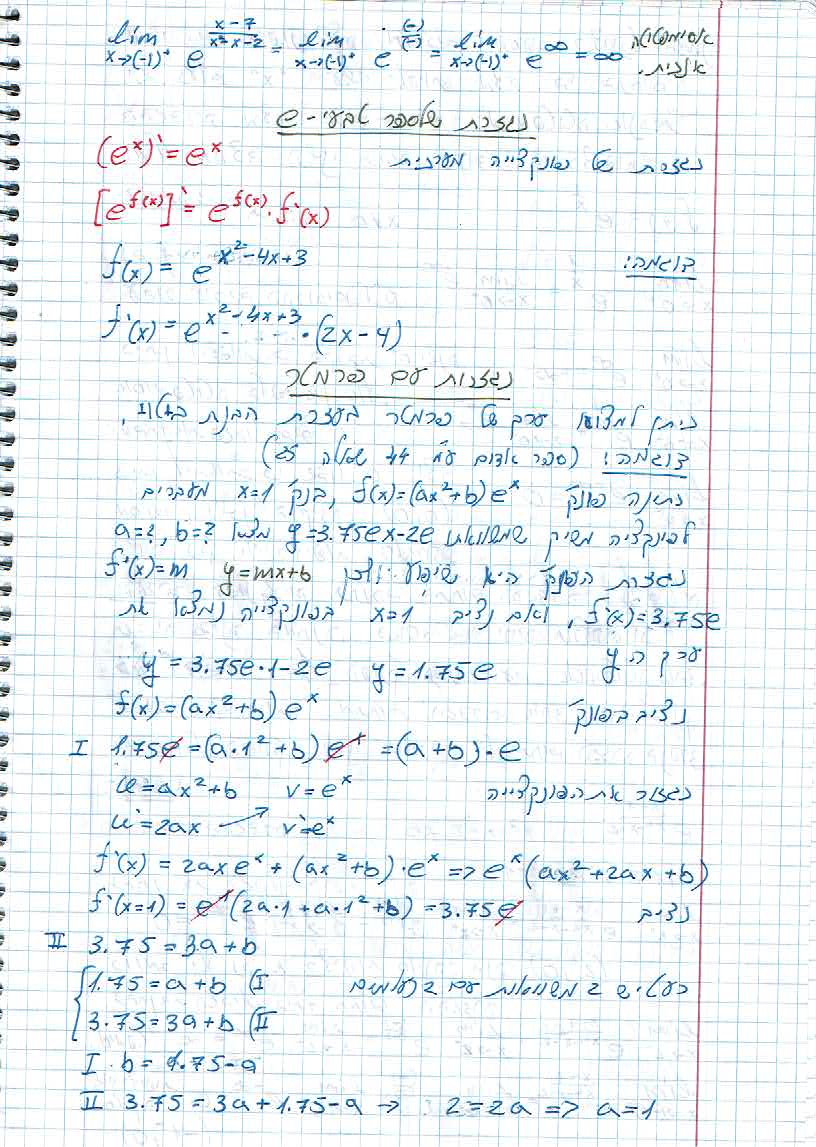 lim x→(-1)⁺ e^((x-7)/(x²-x-2)) = lim x→(-1)⁺ e^((-)/(-)) = lim x→(-1)⁺ e^∞ = ∞ אסימפטוטה אנכית.
נגזרת של מספר טבעי - e
(eˣ)' = eˣ נגזרת של פונקצייה מעריכית
[e^f(x)]' = e^f(x) · f'(x)
f(x) = e^(x²-4x+3) דוגמה:
f'(x) = e^(x²-4x+3) · (2x-4)
נגזרות עם פרמטר
ניתן למצוא ערך של פרמטר בעזרת הבנת
דוגמה: (ספר אדום עמ' 44 שאלה 25)
נתונה פונק' f(x)=(ax²+b)eˣ, בנק' x=1 מעבירים
לפונקציה משיק שמשוואתו y=3.75ex-2e מצאו a=?, b=?
נגזרת הפונק' היא שיפוע ולכן y=mx+b f'(x)=m
f'(x)=3.75e, ואם נציב x=1 בפונקצייה נמצא את
ערך ה y
y = 3.75e·1-2e y = 1.75e
f(x)=(ax²+b)eˣ נציב בפונק'
I 1.75e = (a·1²+b)eˣ = (a+b)·e
u=ax²+b v=eˣ נגזור את הפונקצייה
u'=2ax v'=eˣ
f'(x) = 2axeˣ + (ax²+b)·eˣ => eˣ(ax²+2ax+b)
f'(x=1) = e¹(2a·1+a·1²+b) = 3.75e נציב
II 3.75=3a+b
1.75=a+b (I כעת יש 2 משוואות עם 2 נעלמים
3.75=3a+b (II
I b = 1.75-a
II 3.75=3a+1.75-a → 2=2a => a=1